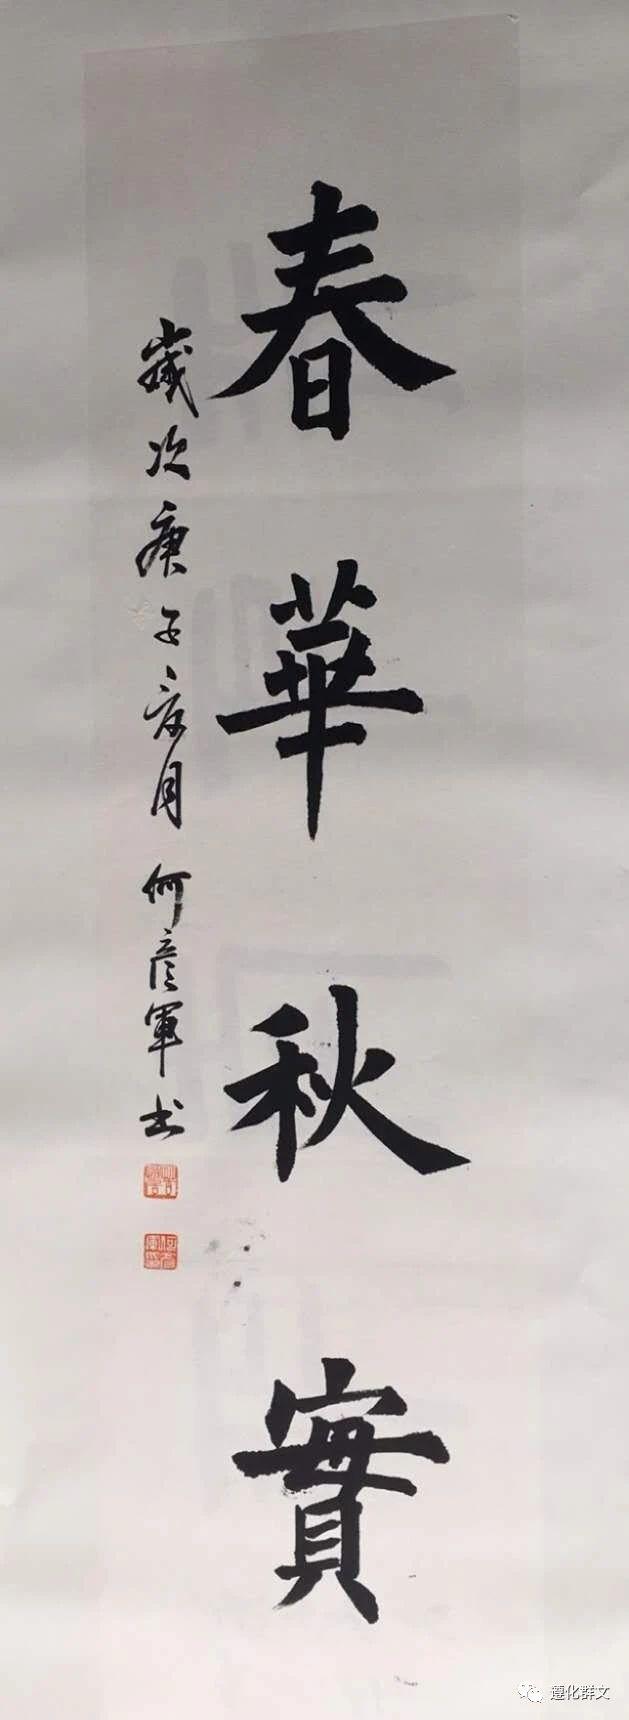 春華秋實
歲次庚子夏月何彥軍书
遵化群文